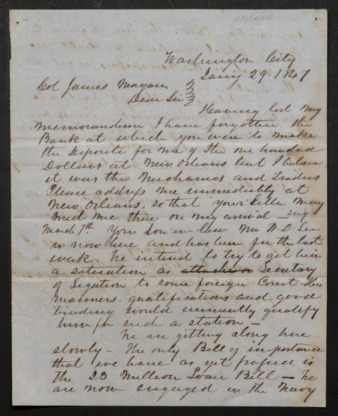 Washington City
Jany 29. 1847
Col James
Dear Sir
Having lost my
memorandum I have forgotten the
Bank at which you were to make
the Deposite for me of the one hundred
Dollars at New Orleans but I believe
it was the Mechanics and Traders
Please address me immediately at
New Orleans, so that your letter may
meet me there on my arrival say
March 7th. Your Son in law Mr W. D. Lee
is now here and has been for the last
week. We intend to try to get him
a situation as Secretary
of Legation to some foreign Court his
manners, qualifications and good
breeding would eminently qualify
him for such a station —
We are getting along here
slowly - The only Bill of importance
that we have as yet passed is
the 23 Million Loan Bill — We
are now engaged in the Navy